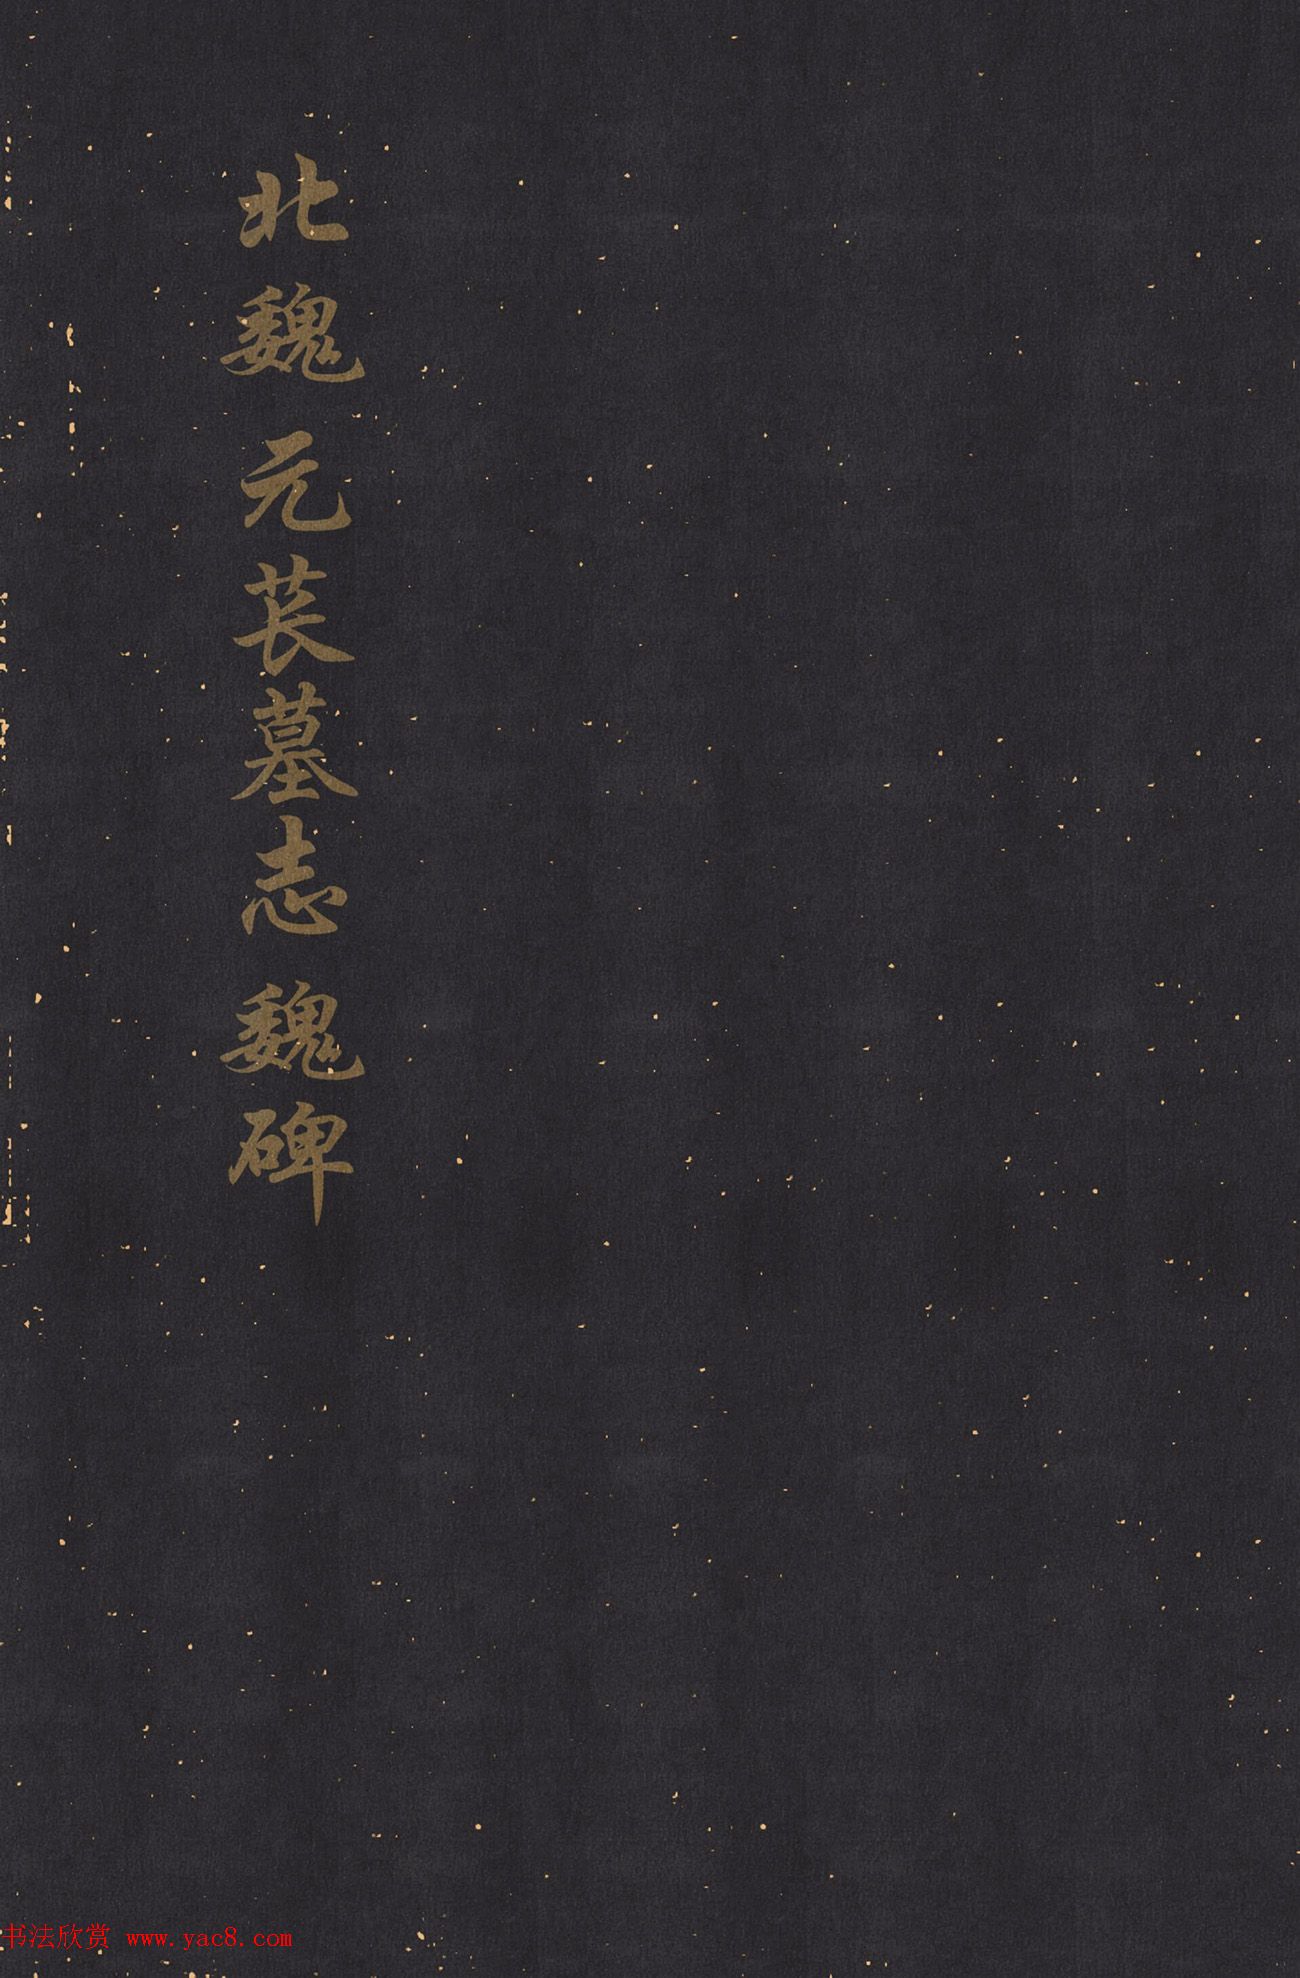 北魏 元苌墓志 魏碑
书法欣赏 www.yac8.com